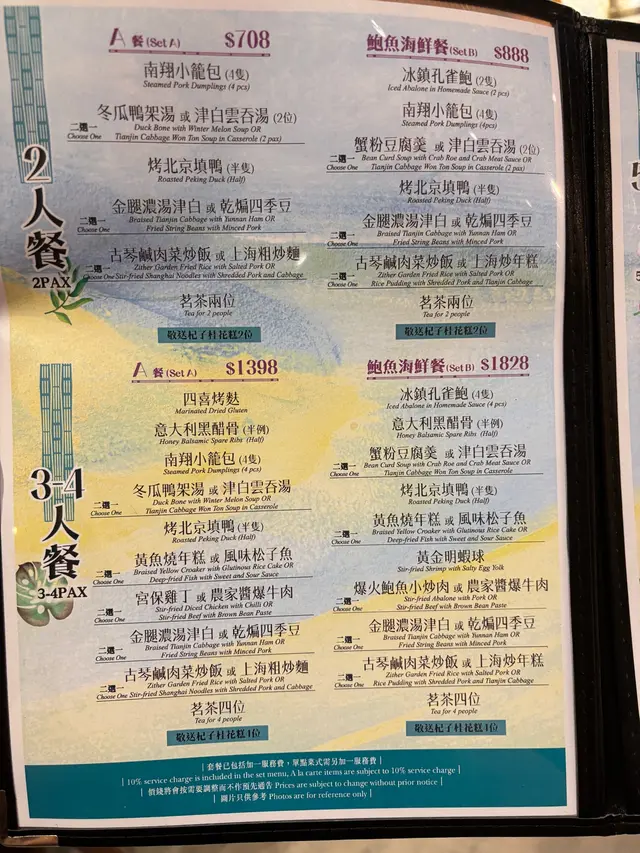 2人餐
2PAX
A 餐 (Set A) $708
南翔小籠包 (4隻)
Steamed Pork Dumplings (4 pcs)
二選一
Choose One
冬瓜鴨架湯 或 津白雲吞湯 (2位)
Duck Bone with Winter Melon Soup OR
Tianjin Cabbage Won Ton Soup in Casserole (2 pax)
烤北京填鴨 (半隻)
Roasted Peking Duck (Half)
二選一
Choose One
金腿濃湯津白 或 乾煸四季豆
Braised Tianjin Cabbage with Yunnan Ham OR
Fried String Beans with Minced Pork
二選一
Choose One
古琴鹹肉菜炒飯 或 上海粗炒麵
Zither Garden Fried Rice with Salted Pork OR
Stir-fried Shanghai Noodles with Shredded Pork and Cabbage
茗茶兩位
Tea for 2 people
敬送杞子桂花糕2位
鮑魚海鮮餐 (Set B) $888
冰鎮孔雀鮑 (2隻)
Iced Abalone in Homemade Sauce (2 pcs)
南翔小籠包 (4隻)
Steamed Pork Dumplings (4pcs)
二選一
Choose One
蟹粉豆腐羹 或 津白雲吞湯 (2位)
Bean Curd Soup with Crab Roe and Crab Meat Sauce OR
Tianjin Cabbage Won Ton Soup in Casserole (2 pax)
烤北京填鴨 (半隻)
Roasted Peking Duck (Half)
二選一
Choose One
金腿濃湯津白 或 乾煸四季豆
Braised Tianjin Cabbage with Yunnan Ham OR
Fried String Beans with Minced Pork
二選一
Choose One
古琴鹹肉菜炒飯 或 上海炒年糕
Zither Garden Fried Rice with Salted Pork OR
Rice Pudding with Shredded Pork and Tianjin Cabbage
茗茶兩位
Tea for 2 people
敬送杞子桂花糕2位
3-4人餐
3-4PAX
A 餐 (Set A) $1398
四喜烤麩
Marinated Dried Gluten
意大利黑醋骨 (半例)
Honey Balsamic Spare Ribs (Half)
南翔小籠包 (4隻)
Steamed Pork Dumplings (4 pcs)
二選一
Choose One
冬瓜鴨架湯 或 津白雲吞湯
Duck Bone with Winter Melon Soup OR
Tianjin Cabbage Won Ton Soup in Casserole
烤北京填鴨 (半隻)
Roasted Peking Duck (Half)
二選一
Choose One
黃魚燒年糕 或 風味松子魚
Braised Yellow Croaker with Glutinous Rice Cake OR
Deep-fried Fish with Sweet and Sour Sauce
二選一
Choose One
宮保雞丁 或 農家醬爆牛肉
Stir-fried Diced Chicken with Chilli OR
Stir-fried Beef with Brown Bean Paste
二選一
Choose One
金腿濃湯津白 或 乾煸四季豆
Braised Tianjin Cabbage with Yunnan Ham OR
Fried String Beans with Minced Pork
二選一
Choose One
古琴鹹肉菜炒飯 或 上海粗炒麵
Zither Garden Fried Rice with Salted Pork OR
Stir-fried Shanghai Noodles with Shredded Pork and Cabbage
茗茶四位
Tea for 4 people
敬送杞子桂花糕4位
鮑魚海鮮餐 (Set B) $1828
冰鎮孔雀鮑 (4隻)
Iced Abalone in Homemade Sauce (4 pcs)
意大利黑醋骨 (半例)
Honey Balsamic Spare Ribs (Half)
二選一
Choose One
蟹粉豆腐羹 或 津白雲吞湯
Bean Curd Soup with Crab Roe and Crab Meat Sauce OR
Tianjin Cabbage Won Ton Soup in Casserole
烤北京填鴨 (半隻)
Roasted Peking Duck (Half)
二選一
Choose One
黃魚燒年糕 或 風味松子魚
Braised Yellow Croaker with Glutinous Rice Cake OR
Deep-fried Fish with Sweet and Sour Sauce
黃金明蝦球
Stir-fried Shrimp with Salty Egg Yolk
二選一
Choose One
爆火鮑魚小炒肉 或 農家醬爆牛肉
Stir-fried Abalone with Pork OR
Stir-fried Beef with Brown Bean Paste
二選一
Choose One
金腿濃湯津白 或 乾煸四季豆
Braised Tianjin Cabbage with Yunnan Ham OR
Fried String Beans with Minced Pork
二選一
Choose One
古琴鹹肉菜炒飯 或 上海炒年糕
Zither Garden Fried Rice with Salted Pork OR
Rice Pudding with Shredded Pork and Tianjin Cabbage
茗茶四位
Tea for 4 people
敬送杞子桂花糕4位
| 套餐已包括加一服務費，單點菜式需另加一服務費 |
| 10% service charge is included in the set menu, A la carte items are subject to 10% service charge |
| 價錢將會按需要調整而不作預先通告 Prices are subject to change without prior notice |
| 圖片只供參考 Photos are for reference only |